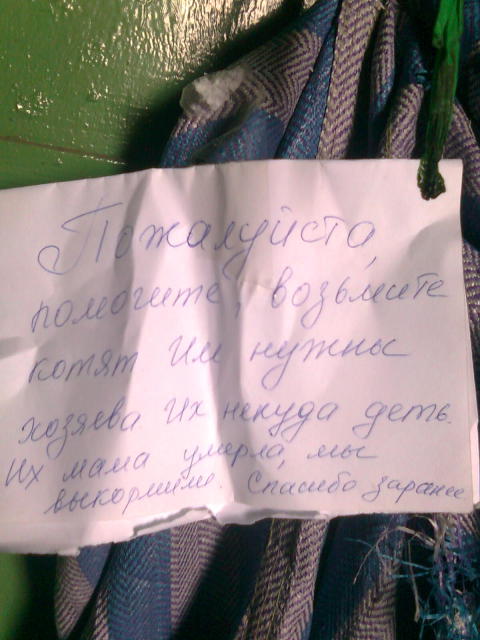 Пожалуйста,
помогите, возьмите
котят Им нужны
хозяева Их некуда деть.
Их мама умерла, мы
выкормили. Спасибо заранее